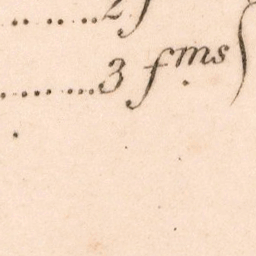 ........3 f^ms